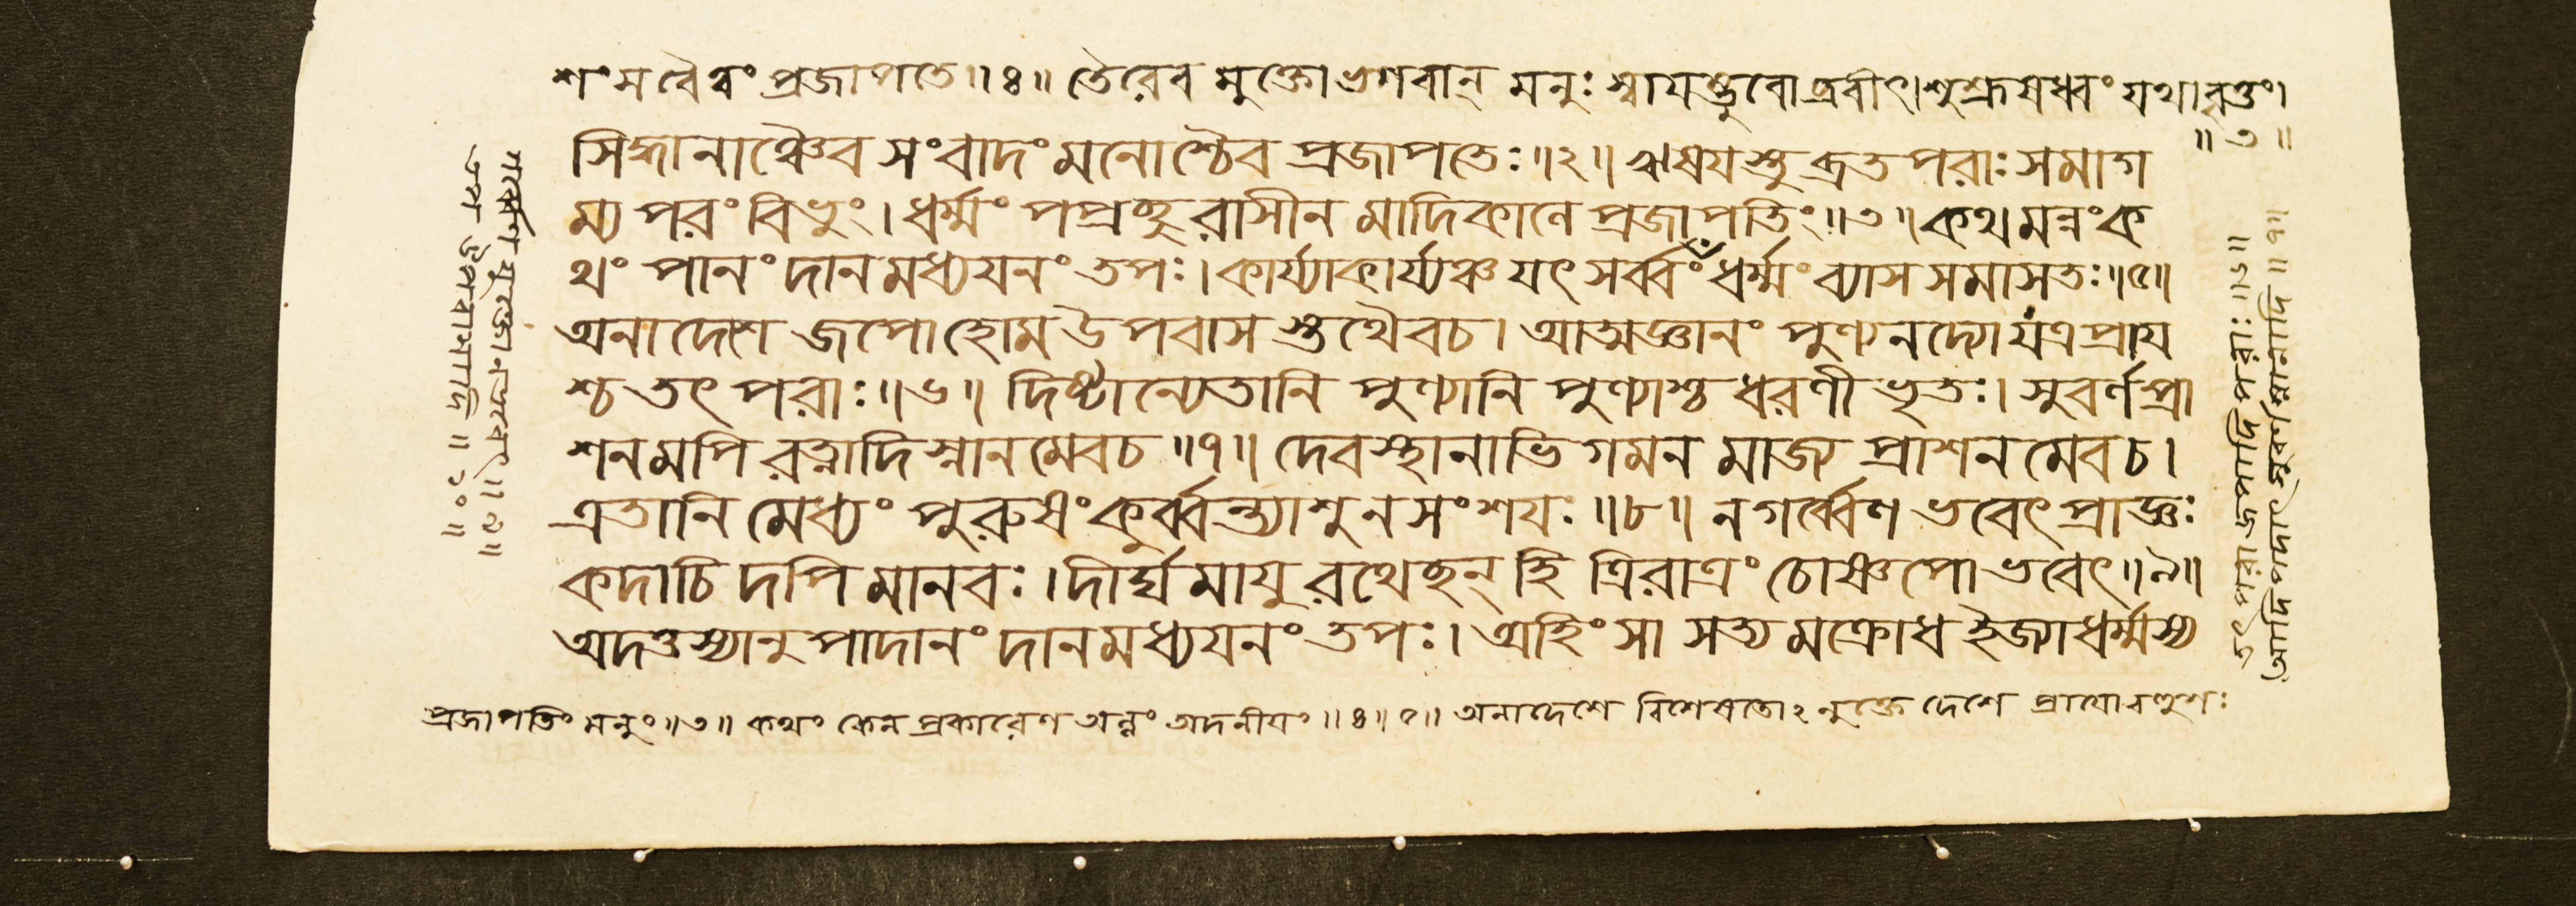 শংসবৈত্বং প্রজাপতে॥৪॥ তৈরেব মুক্তো ভগবান্ মনুঃ স্বায়ম্ভুবো ব্রবীৎ।শুশ্রূষধ্বং যথাবৃত্তং।
॥৩॥
সিদ্ধানাঞ্চৈব সংবাদং মনোশ্চৈব প্রজাপতেঃ॥২॥ ঋষযস্তু ব্রত পরাঃ সমাগ
ম্য পরং বিভুং। ধর্ম্মং পপ্রচ্ছু রাসীন মাদিকালে প্রজাপতিং॥৩॥ কথমন্নং ক
থং পানং দানমধ্যযনং তপঃ। কার্য্যাকার্য্যঞ্চ যৎ সর্ব্বং ধর্ম্মং ব্যাস সমাসতঃ॥৫॥
অনাদেশে জপো হোম উপবাস স্তথৈবচ। আত্মজ্ঞানং পুণ্যনদ্যো যত্র প্রায
শ্চ তৎ পরাঃ॥৬॥ দিষ্টান্যেতানি পুণ্যানি পুণ্যাশ্চ ধরণীভৃতঃ। সুবর্ণপ্রা
শনমপি রত্নাদিস্নানমেবচ॥৭॥ দেবস্থানাভিগমন মাজ্য প্রাশনমেবচ।
এতানি মেধ্যং পুরুষং কুর্ব্বন্ত্যাশু ন সংশযঃ॥৮॥ ন গর্ব্বেণ ভবেৎ প্রাজ্ঞঃ
কদাচিদপি মানবঃ। দীর্ঘমাযু রথেচ্ছন্ হি ত্রিরাত্রং চোষ্ণপো ভবেৎ॥৯॥
অদত্তস্যানুপাদানং দানমধ্যযনং তপঃ। অহিংসা সত্যমক্রোধ ইজ্যা ধর্ম্মস্য
প্রজাপতিং মনুং॥৩॥ কথং কেন প্রকারেণ অন্নং অদনীযং॥৪॥৫॥ অনাদেশে বিশেষতোঽনুক্তে দেশে
গর্ব্বেণ যুক্তো ন ভবেৎ॥৯॥
॥১০॥
তৎ পরা জপাদি পরাঃ॥৬॥
আদি পদাৎ সুবর্ণস্নানাদি॥৭॥